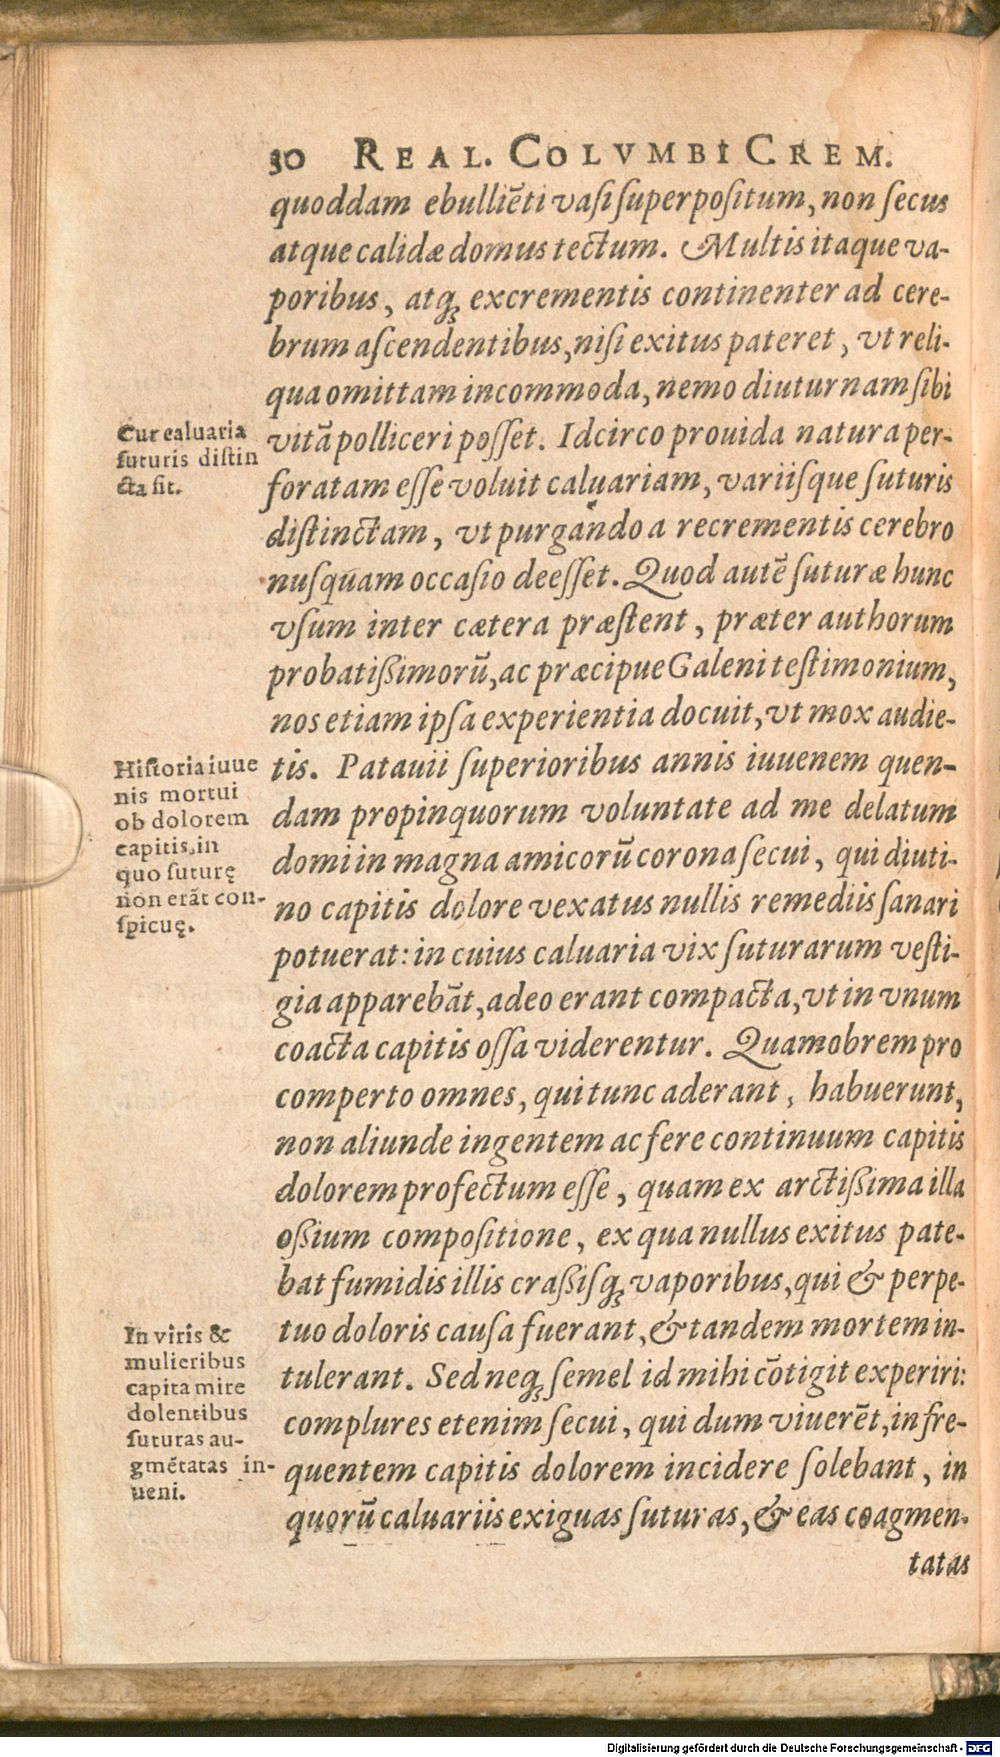 30 REAL. COLVMBI CREM.
quoddam ebulliẽti vasi superpositum, non secus
atque calidæ domus tectum. Multis itaque va-
poribus, atq; excrementis continenter ad cere-
brum ascendentibus, nisi exitus pateret, vt reli-
qua omittam incommoda, nemo diuturnam sibi
Cur caluaria
suturis distin
cta sit.
vitã polliceri posset. Idcirco prouida natura per-
foratam esse voluit caluariam, variisque suturis
distinctam, vt purgando a recrementis cerebro
nusquam occasio deesset. Quod autẽ suturæ hunc
vsum inter cætera præstent, præter authorum
probatißimorũ, ac præcipue Galeni testimonium,
nos etiam ipsa experientia docuit, vt mox audie-
Historia iuue
nis mortui
ob dolorem
capitis, in
quo suturę
non erãt con-
spicuę.
tis. Patauii superioribus annis iuuenem quen-
dam propinquorum voluntate ad me delatum
domi in magna amicorũ corona secui, qui diuti-
no capitis dolore vexatus nullis remediis sanari
potuerat: in cuius caluaria vix suturarum vesti-
gia apparebãt, adeo erant compacta, vt in vnum
coacta capitis ossa viderentur. Quamobrem pro
comperto omnes, qui tunc aderant, habuerunt,
non aliunde ingentem ac fere continuum capitis
dolorem profectum esse, quam ex arctißima illa
oßium compositione, ex qua nullus exitus pate-
bat fumidis illis craßisq; vaporibus, qui & perpe-
In viris &
mulieribus
capita mire
dolentibus
suturas au-
gmẽtatas in-
ueni.
tuo doloris causa fuerant, & tandem mortem in-
tulerant. Sed neq; semel id mihi cõtigit experiri:
complures etenim secui, qui dum viuerẽt, in fre-
quentem capitis dolorem incidere solebant, in
quorũ caluariis exiguas suturas, & eas coagmen-
tatas
Digitalisierung gefördert durch die Deutsche Forschungsgemeinschaft - DFG